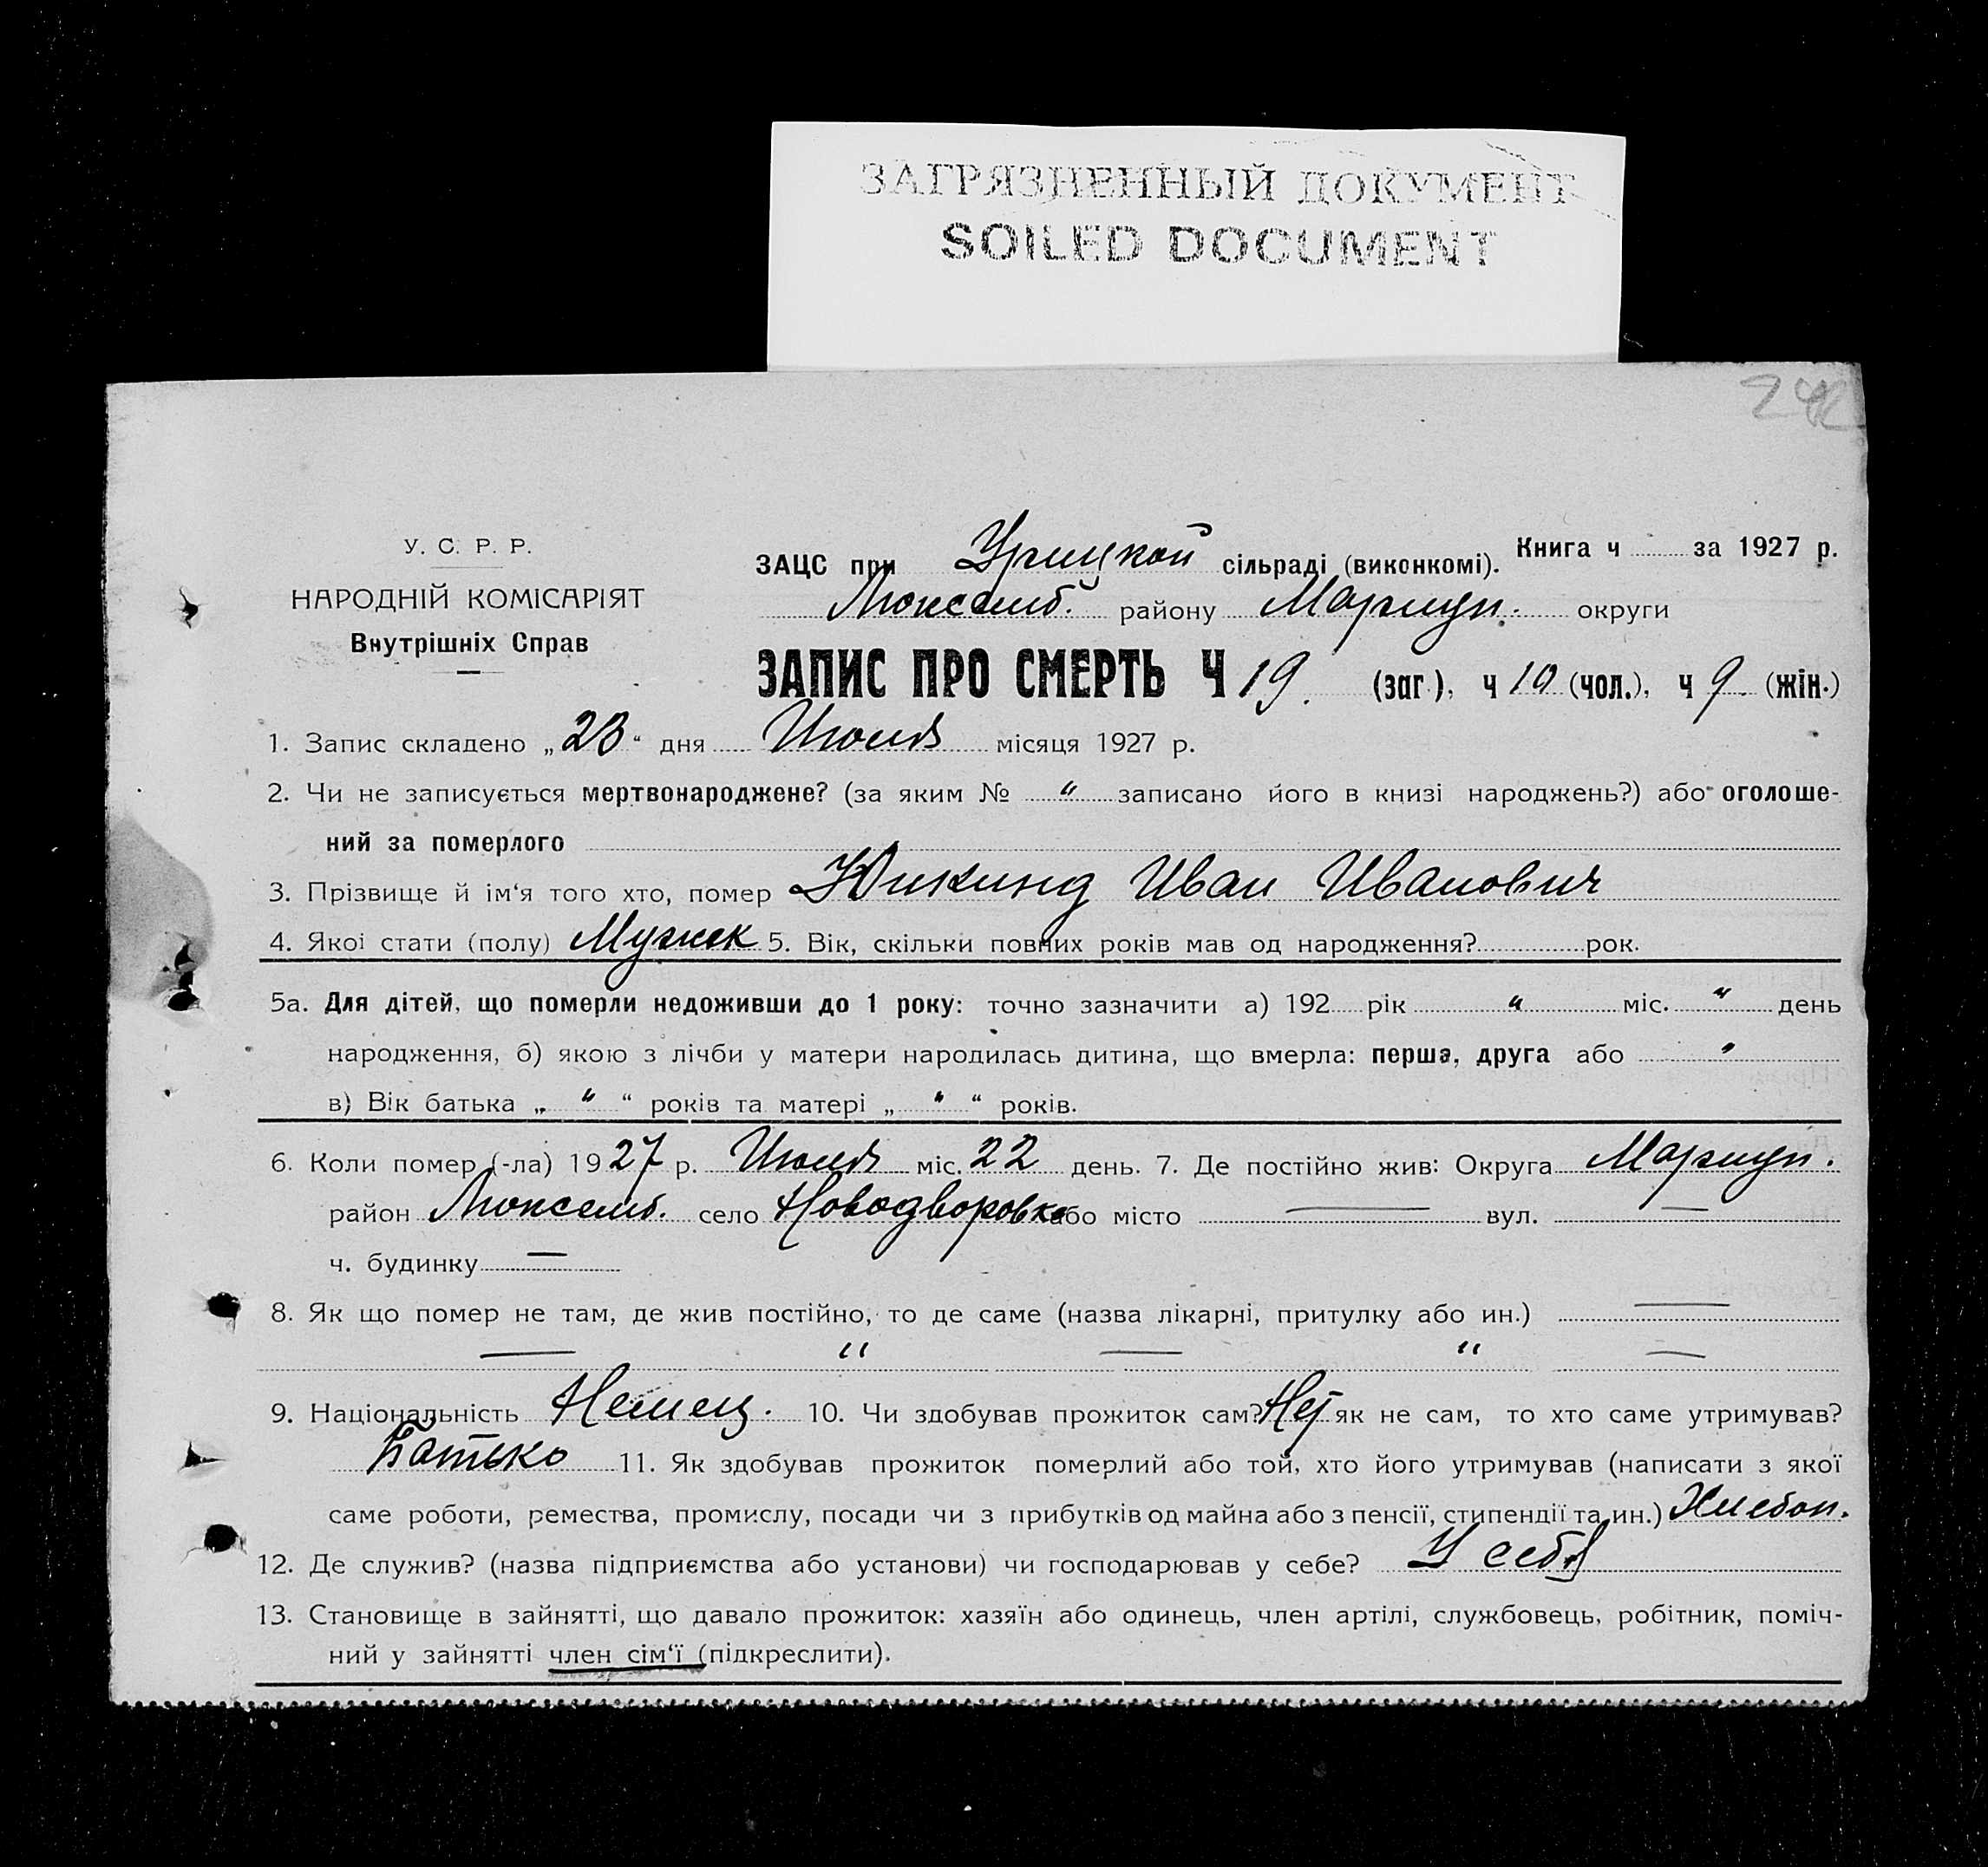 ЗАГРЯЗНЕННЫЙ ДОКУМЕНТ
SOILED DOCUMENT
У. С. Р. Р.
НАРОДНІЙ КОМІСАРІЯТ
Внутрішніх Справ
ЗАЦС при Урицкой сільраді (виконкомі). Книга ч за 1927 р.
Люксемб. району Мариуп. округи
ЗАПИС ПРО СМЕРТЬ Ч 19. (заг.), ч 10 (чол.), ч 9. (жін.)
1. Запис складено „23“ дня Июля місяця 1927 р.
2. Чи не записується мертвонароджене? (за яким № " записано його в книзі народжень?) або оголоше-
ний за померлого
3. Прізвище й ім‘я того хто, помер Иван Иванович
4. Якоі стати (полу) Мужск 5. Вік, скільки повних років мав од народження? рок.
5а. Для дітей, що померли недоживши до 1 року: точно зазначити а) 192 рік " міс. " день
народження, б) якою з лічби у матери народилась дитина, що вмерла: перша, друга або "
в) Вік батька „ " “ років та матері „ " “ років.
6. Коли помер (-ла) 1927 р. Июля міс. 22 день. 7. Де постійно жив: Округа Мариуп.
район Люксемб. село Новодворовка або місто — вул. —
ч. будинку —
8. Як що помер не там, де жив постійно, то де саме (назва лікарні, притулку або ин.) —
— " — " —
9. Національність Немец. 10. Чи здобував прожиток сам? Нет як не сам, то хто саме утримував?
Батько 11. Як здобував прожиток померлий або той, хто його утримував (написати з якої
саме роботи, ремества, промислу, посади чи з прибутків од майна або з пенсії, стипендії та ин.) Хлебоп.
12. Де служив? (назва підприємства або установи) чи господарював у себе? У себя
13. Становище в зайнятті, що давало прожиток: хазяїн або одинець, член артілі, службовець, робітник, поміч-
ний у зайнятті член сім‘ї (підкреслити).